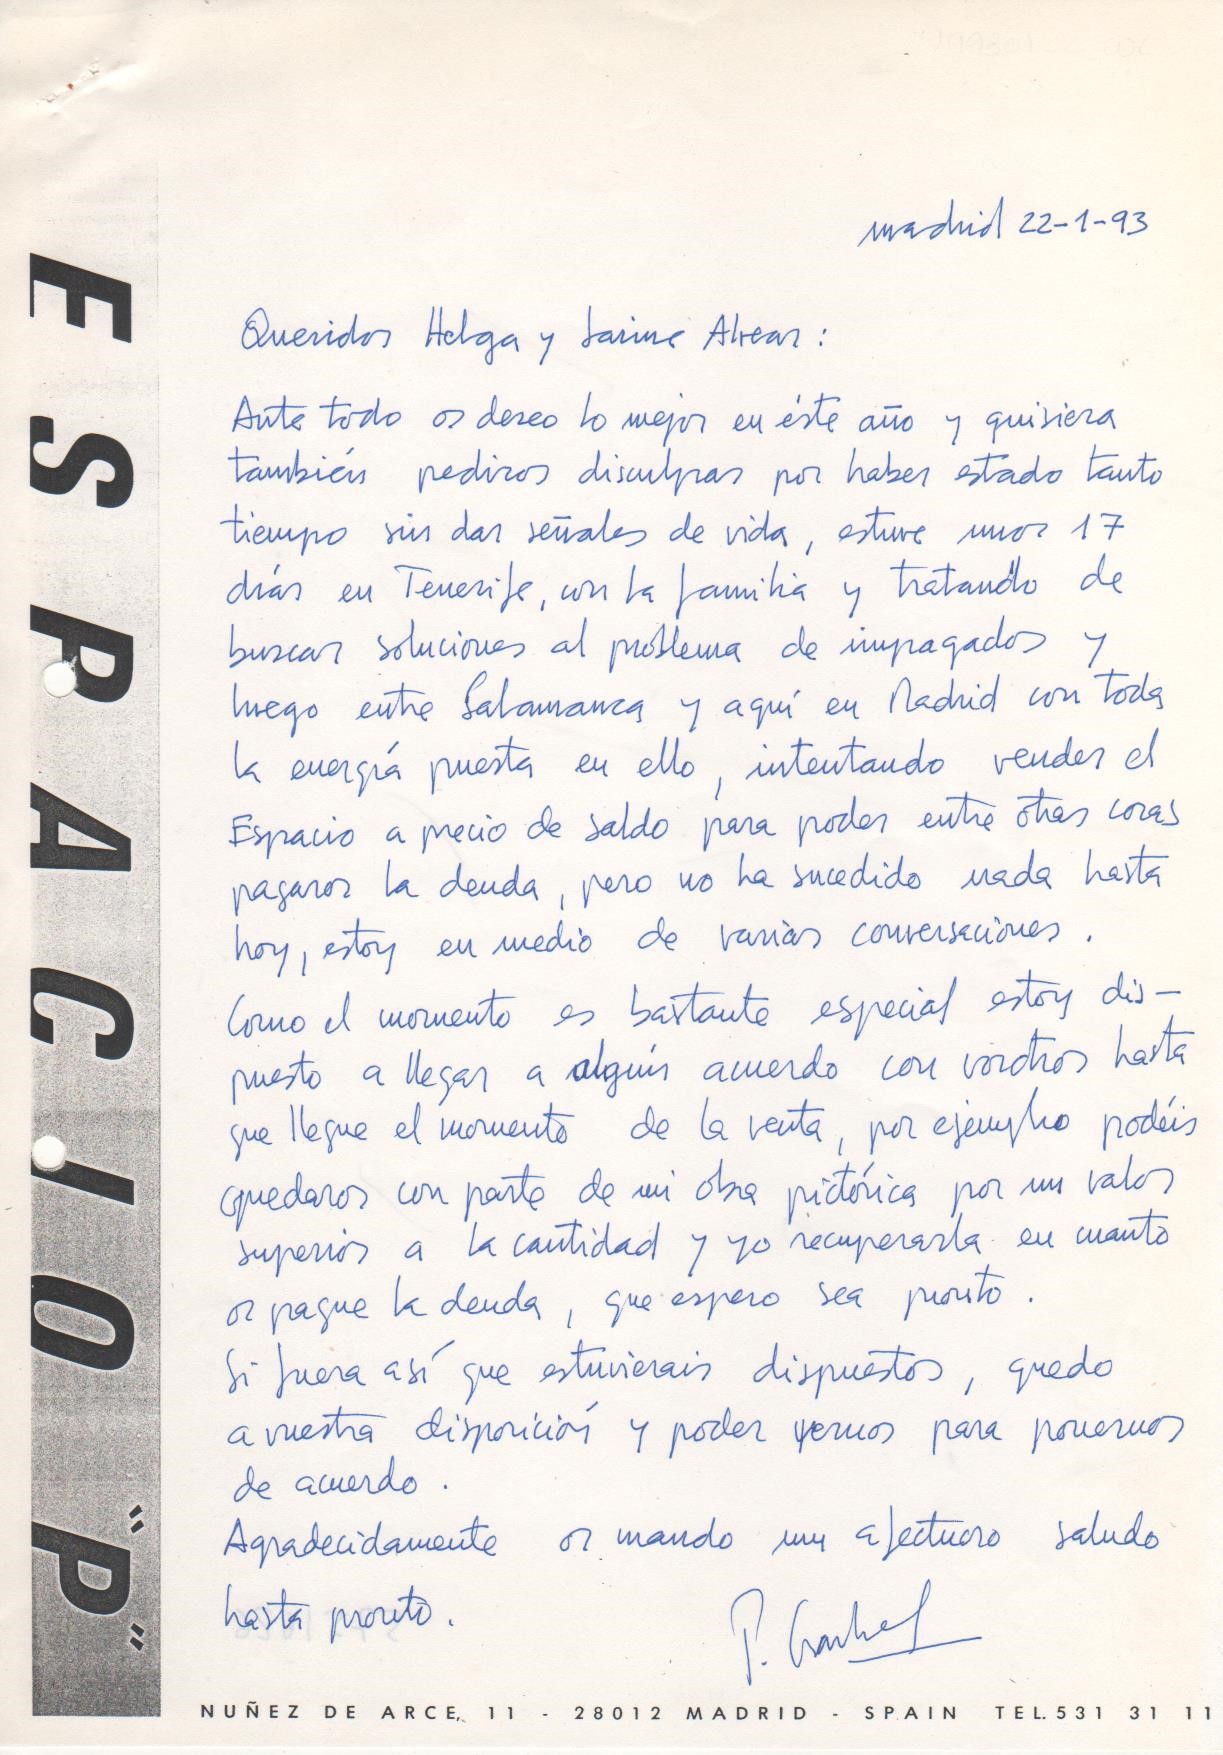 madrid 22-1-93
Queridos Helga y Jaime Alvear:
Ante todo os deseo lo mejor en éste año y quisiera
también pediros disculpas por haber estado tanto
tiempo sin dar señales de vida, estuve unos 17
días en Tenerife, con la familia y tratando de
buscar soluciones al problema de impagados y
luego entre Salamanca y aquí en Madrid con toda
la energía puesta en ello, intentando vender el
Espacio a precio de saldo para poder entre otras cosas
pagaros la deuda, pero no ha sucedido nada hasta
hoy, estoy en medio de varias conversaciones.
Como el momento es bastante especial estoy dis-
puesto a llegar a algún acuerdo con vosotros hasta
que llegue el momento de la venta, por ejemplo podéis
quedaros con parte de mi obra pictórica por un valor
superior a la cantidad y yo recuperarla en cuanto
os pague la deuda, que espero sea pronto.
Si fuera así que estuvierais dispuestos, quedo
a vuestra disposición y poder vernos para ponernos
de acuerdo.
Agradecidamente os mando un afectuoso saludo
hasta pronto.
P.
ESPACIO "P"
NUÑEZ DE ARCE, 11 - 28012 MADRID - SPAIN TEL. 531 31 11